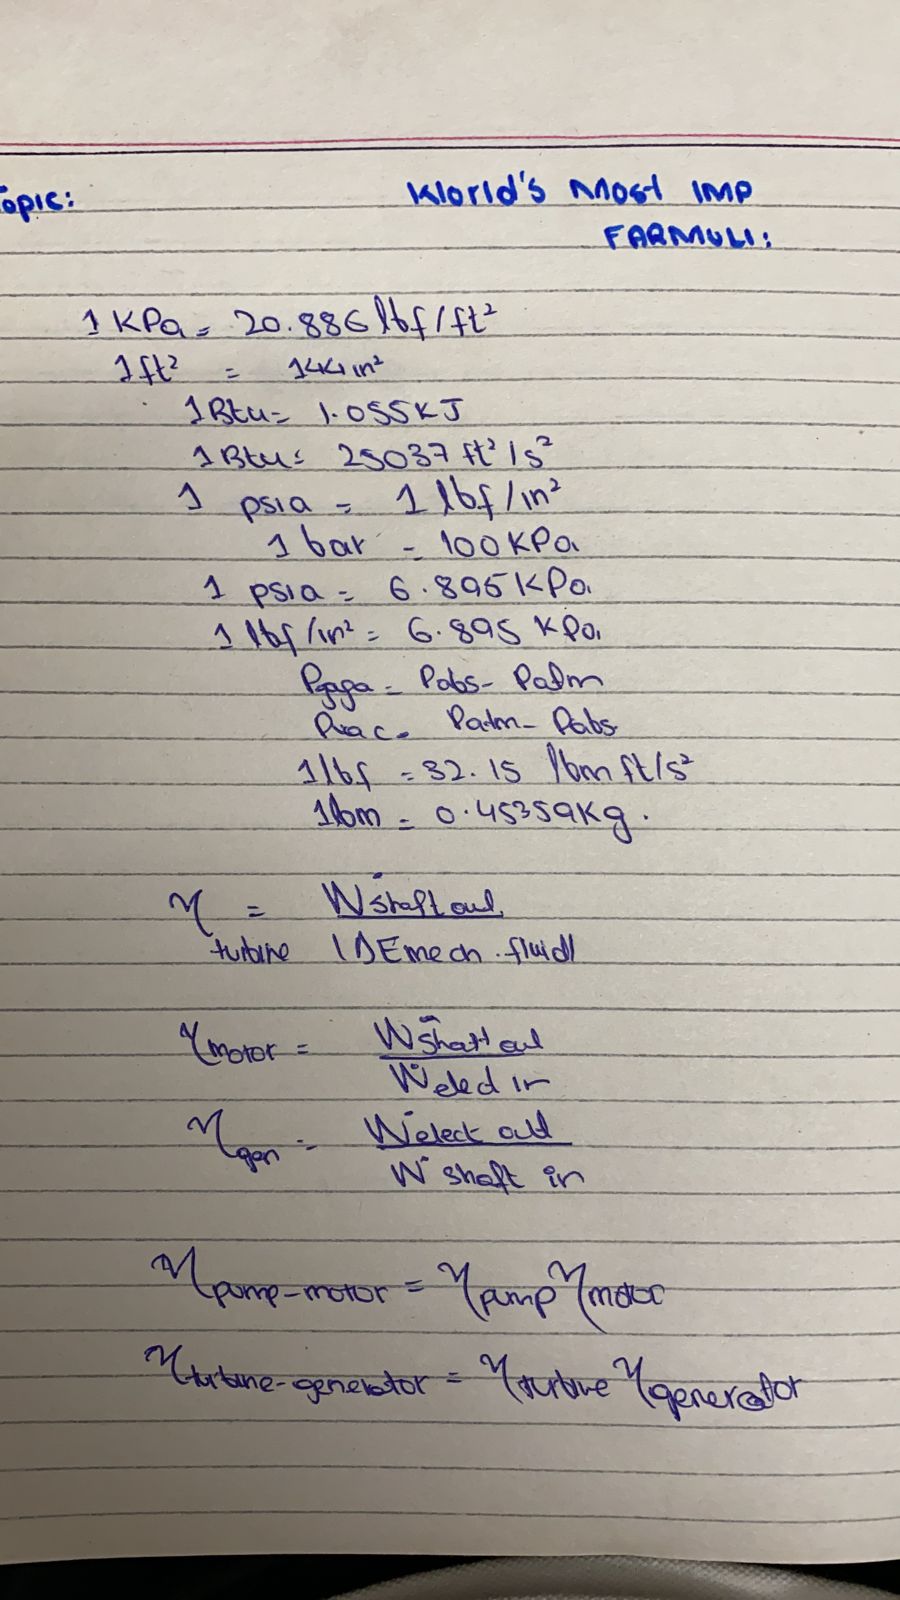 Topic:
World's Most IMP
FARMULI:
1 KPa = 20.886 lbf/ft²
1 ft² = 144 in²
1 Btu = 1.055 KJ
1 Btu = 25037 ft²/s²
1 psia = 1 lbf/in²
1 bar = 100 KPa
1 psia = 6.895 KPa
1 lbf/in² = 6.895 KPa
Pgaga = Pabs - Patm
Pvac = Patm - Pabs
1 lbf = 32.15 lbm ft/s²
1 lbm = 0.45359 Kg.
η turbine = Ẇ shaft out / |ΔE mech.fluid|
η motor = Ẇ shaft out / Ẇ elect in
η gen = Ẇ elect out / Ẇ shaft in
η pump-motor = η pump η motor
η turbine-generator = η turbine η generator